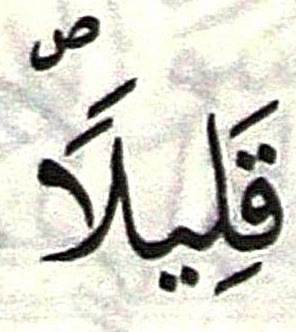 قَلِيلًا ص